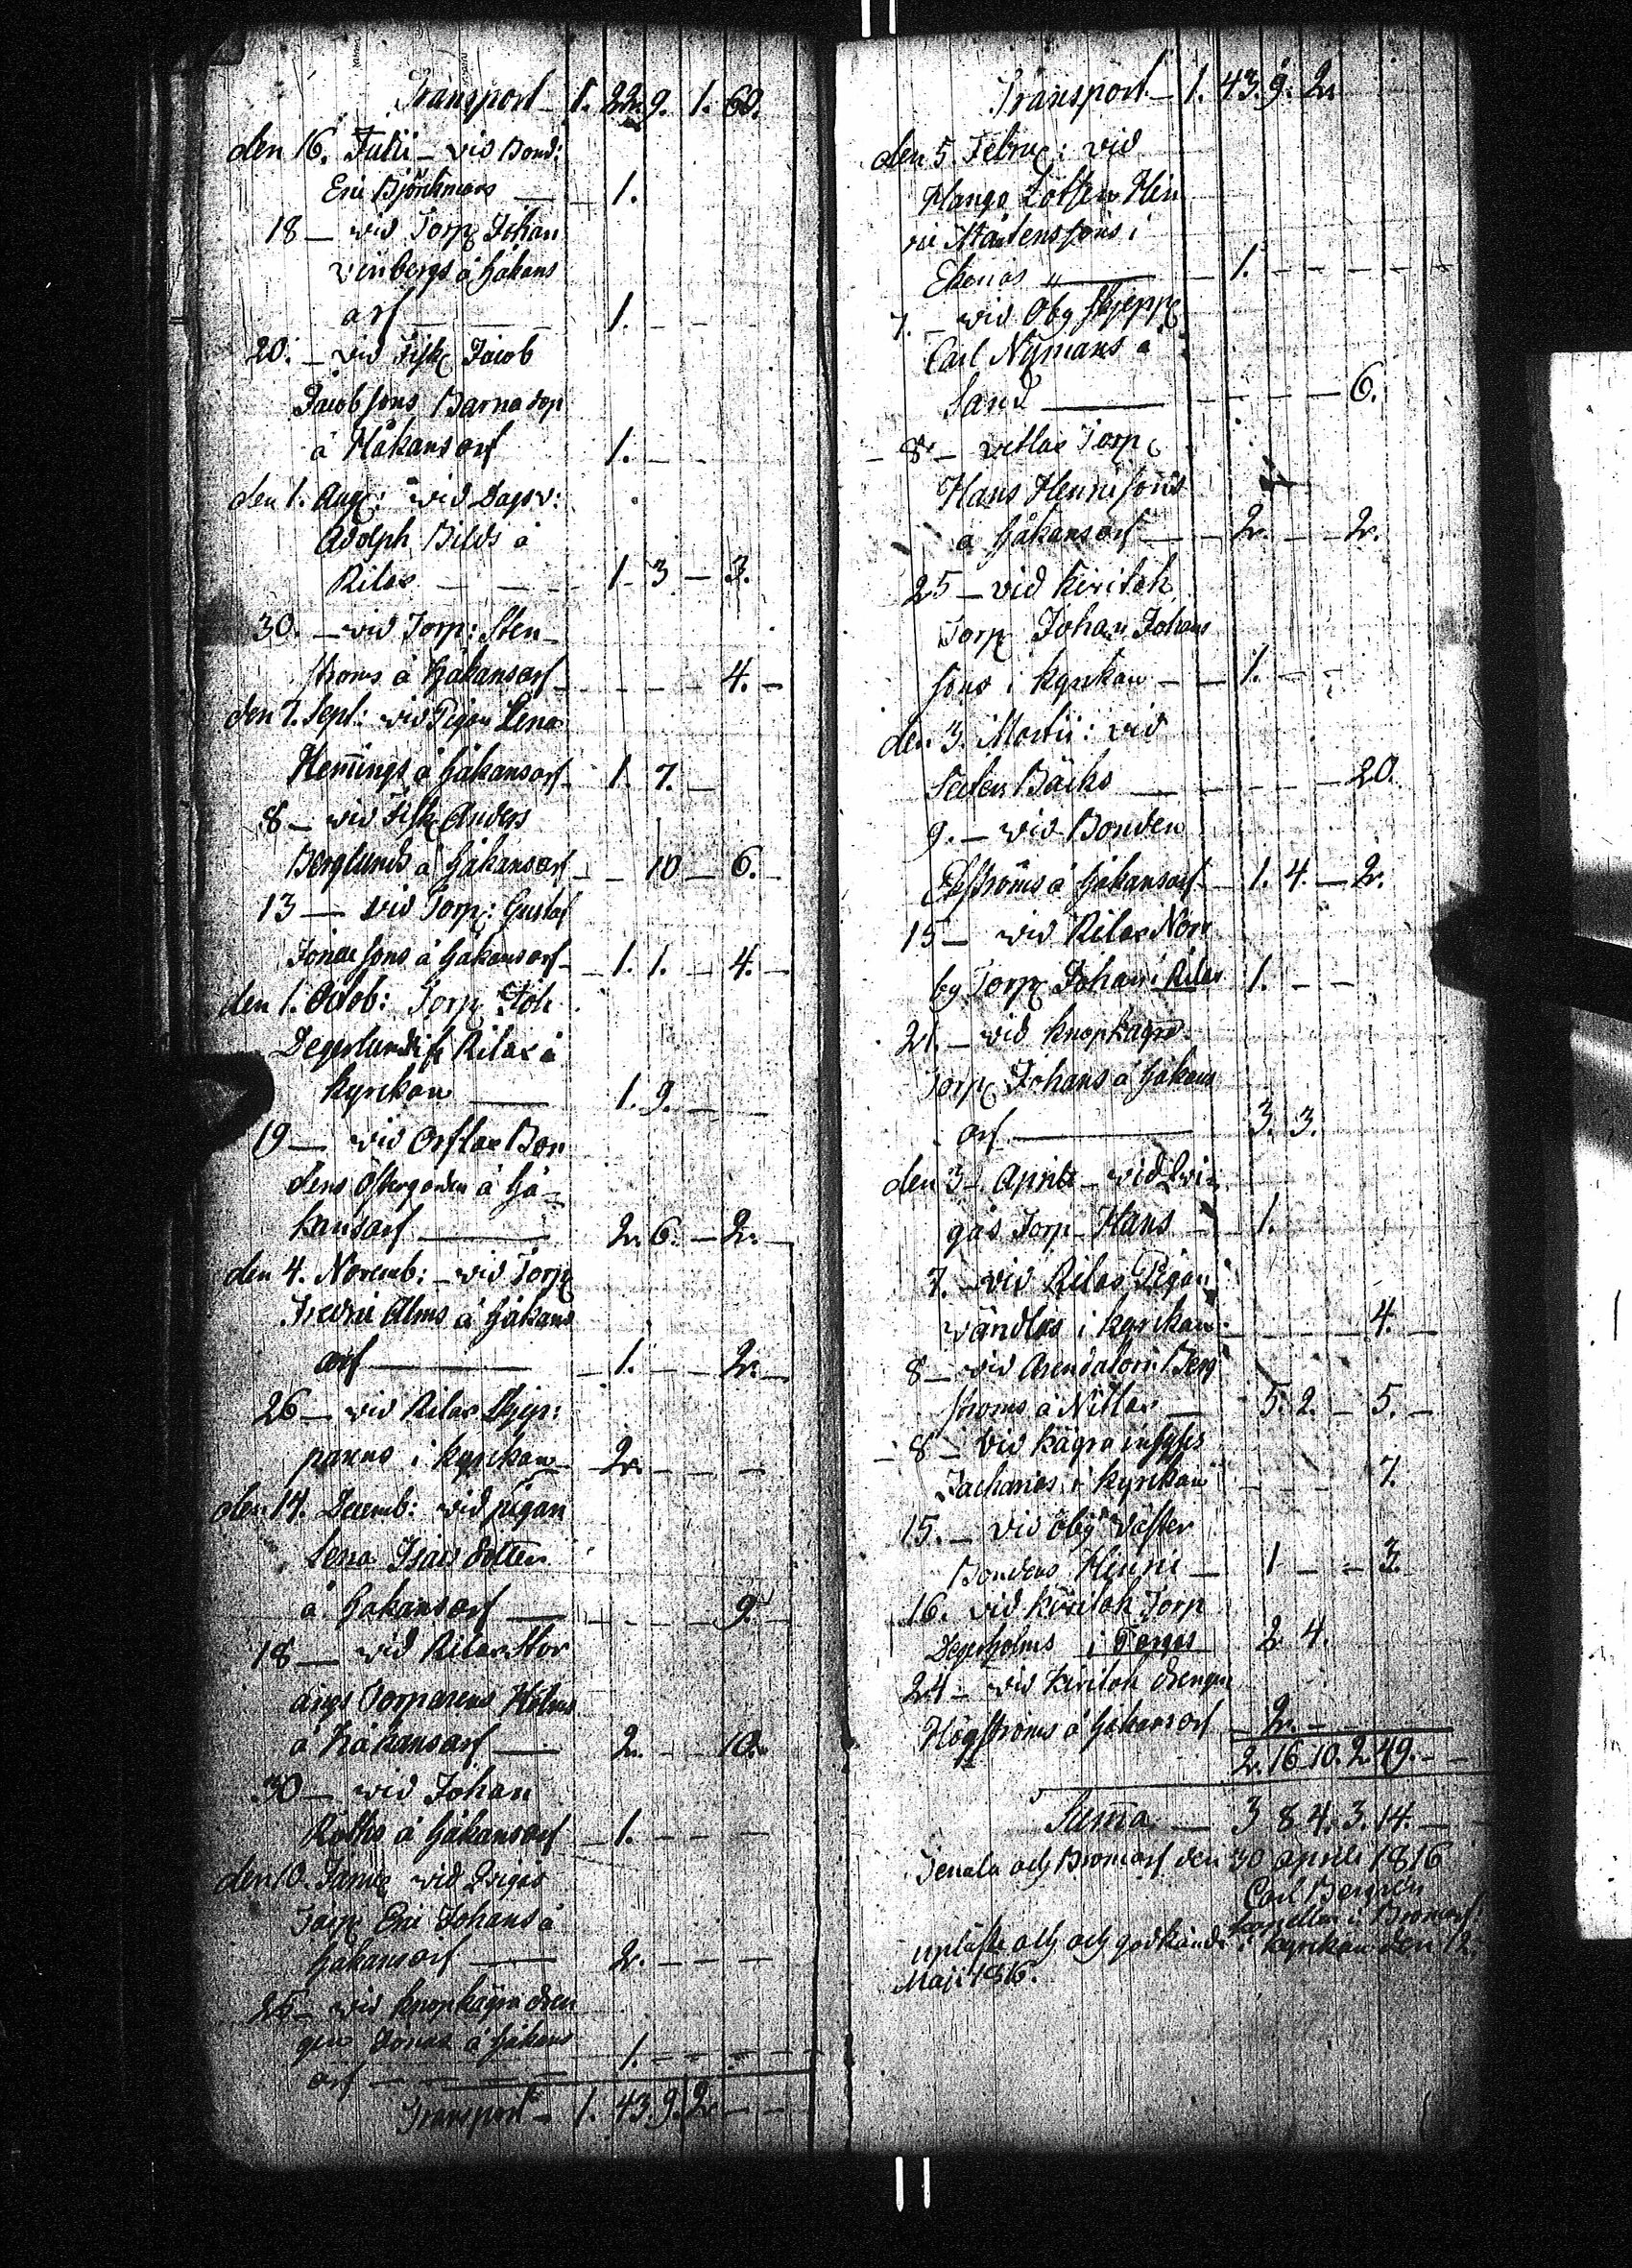 Transport - 1. 22. 9. 1. 60.
den 16. Julii - vid Bond:
Eric Björkmans — 1.
18 — vid Torp Johan
Vinbergs å Håkans
arf — 1. - - -
20. — vid Fisk Jacob
Jacobsons Barnadop
å Håkansarf 1. - -
den 1. Aug: vid Dagsv:
Adolph Bilds å
Rilax — 1 - 3 - 3.
30. — vid Torp: Sten-
ströms å Håkansarf - - - - 4. -
den 7. Sept: vid Pigan Lena
Hemings å Håkansarf - 1. 7. -
8 — vid Fisk Anders
Berglunds å Håkansarf - - 10 - 6. -
13 — vid Torp: Gustaf
Jonaesons å Håkansarf - 1. 1. - 4. -
den 1. Octob: Torp Joh
Degerlunds fr Rilax i
kyrkan — 1. 9. - -
19 — vid Orslax Bon
dens Östergården å Hå-
kansarf — 2. 6. - 2. -
den 4. Novemb: - vid Torp
Fredric Alms å Håkans
arf — 1. - - 2. -
26 — vid Rilax Skep:
parens i kyrkan - 2. - - -
den 14. Decemb: vid pigan
Lena Isacsdotter
å Håkansarf — - - - 9. -
18 — vid Rilax Stor
ängs Torparens Holms
å Håkansarf — 2. - - 10.
30 — vid Johan
Roths å Håkansarf - 1. - - -
den 10. Janu vid
Torp Eric Johans å
Håkansarf — 2. - - -
25 — vid Knopkägra dren
gen Jonas å Håkans
arf — 1. - - -
Transport - 1. 43. 9. 2. - -
Transport - 1. 43. 9. 2.
den 5. Febru: vid
Manga Lotten Hin
ric Mårtenssons i
Ekenäs — 1. - - - -
7. — vid Öby Skepp
Carl Nymans å
Sand — - - - 6.
8 — vid Torp
Hans Henricsons
å Håkansarf — 2. - - 2.
25 — vid Kivitok
Torp Johan Johans
sons i kyrkan — 1. - -
den 3. Martii: vid
Bäcks — - - - 20.
9. — vid Bonden
Ekströms å Håkansarf - 1. 4. - 2.
15 — vid Rilax Norr
by Torp Johan i Rilax 1. - -
21. — vid Knopkägra
Torp Johans å Håkans
arf — 3. 3.
den 3 - April - vid
gås Torp Hans - 1.
7. — vid Rilax Pigan
i kyrkan - - - - 4. -
8 — vid Arendatorn Berg
ströms å Nitlax — 5. 2. - 5. -
8 — vid Kägra
Zacharias i kyrkan - - - 7.
15. — vid Öby Väster
Bondens Henric — 1 - - 3.
16. vid Kivitok Torp
Degerholms i 2. 4.
24 — vid Kivitok drengen
Högströms å Håkansarf - 2. -
2. 16. 10. 2. 49. - -
Suma — 3 8 4. 3. 14. -
Tenala och Bromarf den 30 April 1816
Carl Bergren
kapellan i Bromarf.
upläst och godkänd i kyrkan den 12
Maji 1816.